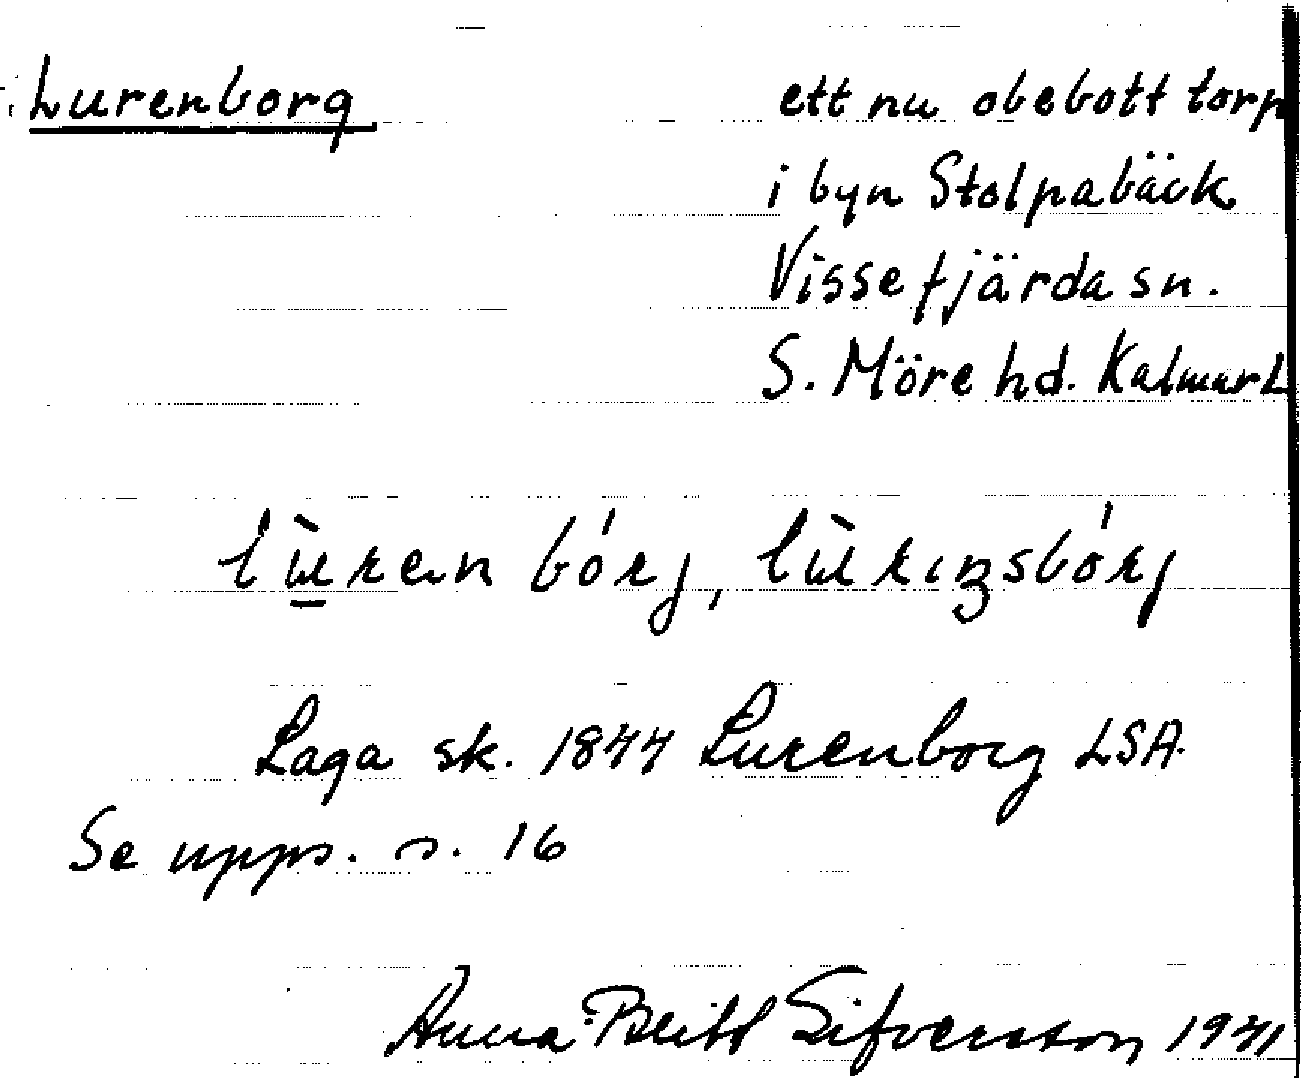 Lurenborg ett nu obebott torp
i byn Stolpabäck
Vissefjärda sn.
S. Möre hd. Kalmar L
lùren bórj, lùrıŋsbórj
Laga sk. 1844 Lurenborg LSA.
Se upps. s. 16
Anna-Britt Sifversson 1941